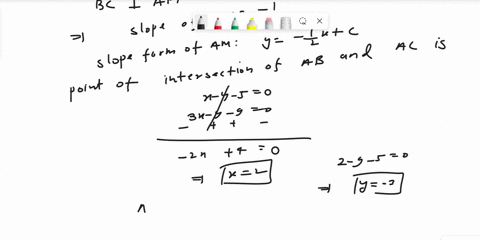 BC ⊥ AM
⇒ slope of
slope form of AM: y = -1/2 x + c
point of intersection of AB and AC is
x - y - 5 = 0
3x - y - 9 = 0
- + + -
-2x + 4 = 0
⇒ x = 2
2 - y - 5 = 0
⇒ y = -3